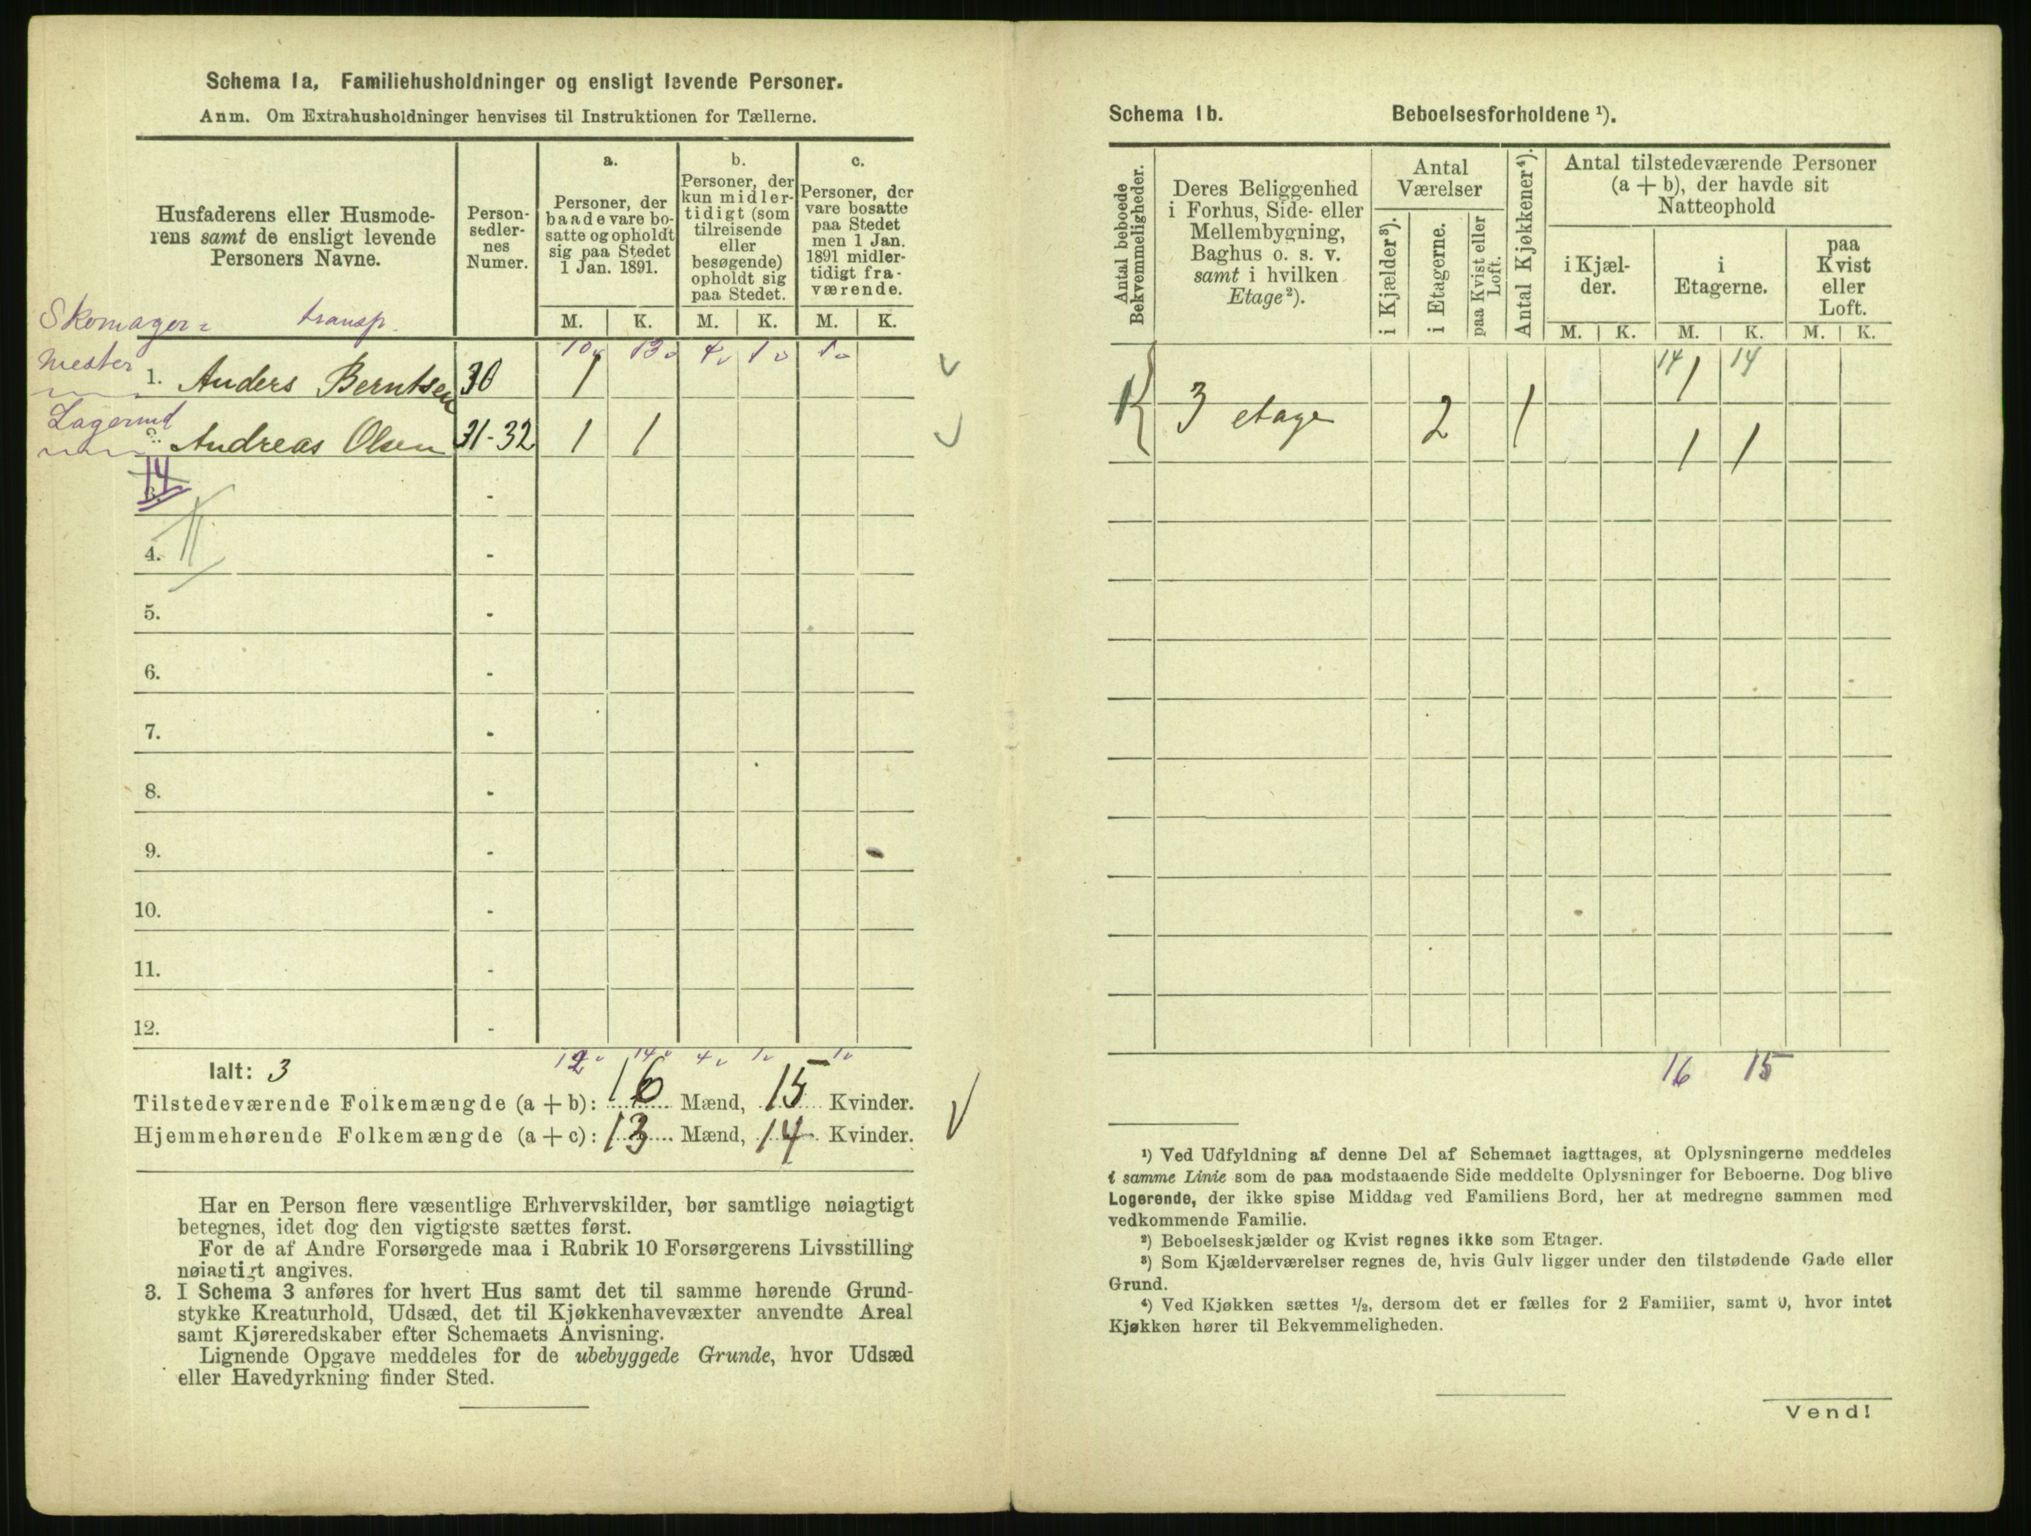 Schema 1a, Familiehusholdninger og ensligt levende Personer.
Anm. Om Extrahusholdninger henvises til Instruktionen for Tællerne.
Husfaderens eller Husmode-
rens samt de ensligt levende
Personers Navne.
Person-
sedler-
nes
Numer.
a.
Personer, der
baade vare bo-
satte og opholdt
sig paa Stedet
1 Jan. 1891.
b.
Personer, der
kun midler-
tidigt (som
tilreisende
eller
besøgende)
opholdt sig
paa Stedet.
c.
Personer, der
vare bosatte
paa Stedet
men 1 Jan.
1891 midler-
tidigt fra-
værende.
M. K. M. K. M. K.
Skomager= transp. 10 13 4 1 1
mester
1. Anders Berntsen 30 1
Lagermd
2. Andreas Olsen 31-32 1 1
14
3. -
4. -
5. -
6. -
7. -
8. -
9. -
10. -
11. -
12. -
12 14 4 1 1
Ialt: 3
Tilstedeværende Folkemængde (a + b): 16 Mænd, 15 Kvinder.
Hjemmehørende Folkemængde (a + c): 13 Mænd, 14 Kvinder.
Har en Person flere væsentlige Erhvervskilder, bør samtlige nøiagtigt
betegnes, idet dog den vigtigste sættes først.
For de af Andre Forsørgede maa i Rubrik 10 Forsørgerens Livsstilling
nøiagtigt angives.
3. I Schema 3 anføres for hvert Hus samt det til samme hørende Grund-
stykke Kreaturhold, Udsæd, det til Kjøkkenhavevæxter anvendte Areal
samt Kjøreredskaber efter Schemaets Anvisning.
Lignende Opgave meddeles for de ubebyggede Grunde, hvor Udsæd
eller Havedyrkning finder Sted.
Schema 1b. Beboelsesforholdene ¹).
Antal beboede
Bekvemmeligheder.
Deres Beliggenhed
i Forhus, Side- eller
Mellembygning,
Baghus o. s. v.
samt i hvilken
Etage²).
Antal
Værelser
i Kjælder³).
i Etagerne.
paa Kvist eller
Loft.
Antal Kjøkkener⁴).
Antal tilstedeværende Personer
(a + b), der havde sit
Natteophold
i Kjæl-
der.
i
Etagerne.
paa
Kvist
eller
Loft.
M. K. M. K. M. K.
14 14
1
3 etage 2 1
1 1
16 15
¹) Ved Udfyldning af denne Del af Schemaet iagttages, at Oplysningerne meddeles
i samme Linie som de paa modstaaende Side meddelte Oplysninger for Beboerne. Dog blive
Logerende, der ikke spise Middag ved Familiens Bord, her at medregne sammen med
vedkommende Familie.
²) Beboelseskjælder og Kvist regnes ikke som Etager.
³) Som Kjælderværelser regnes de, hvis Gulv ligger under den tilstødende Gade eller
Grund.
⁴) Ved Kjøkken sættes ½, dersom det er fælles for 2 Familier, samt 0, hvor intet
Kjøkken hører til Bekvemmeligheden.
Vend!